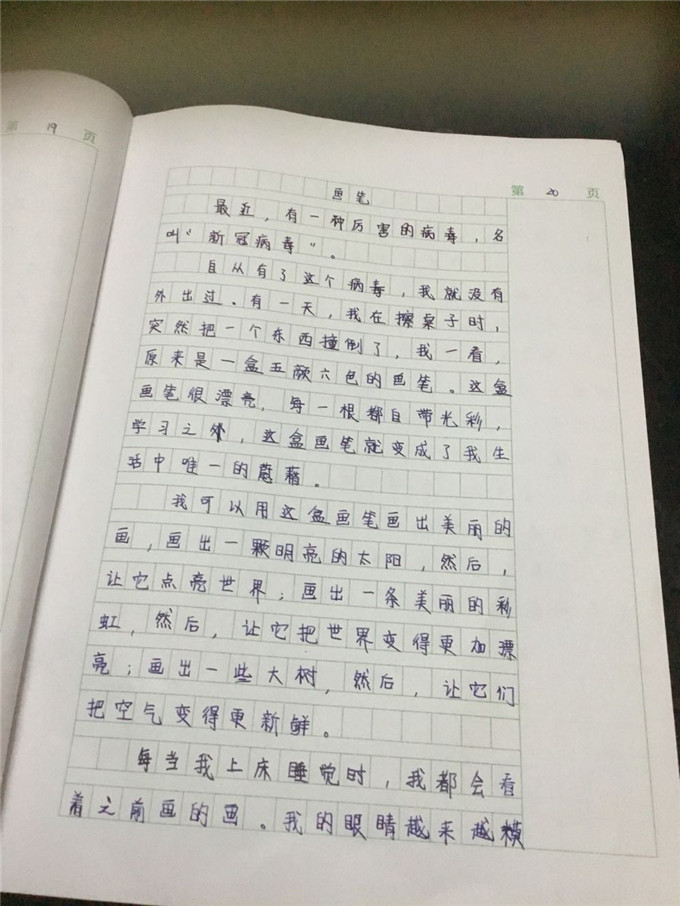 第 19 页
第 20 页
画笔
最近，有一种厉害的病毒，名
叫“新冠病毒”。
自从有了这个病毒，我就没有
外出过。有一天，我在擦桌子时，
突然把一个东西撞倒了，我一看，
原来是一盒五颜六色的画笔。这盒
画笔很漂亮，每一根都自带光彩，
学习之外，这盒画笔就变成了我生
活中唯一的慰藉。
我可以用这盒画笔画出美丽的
画，画出一颗明亮的太阳，然后，
让它点亮世界；画出一条美丽的彩
虹，然后，让它把世界变得更加漂
亮；画出一些大树，然后，让它们
把空气变得更新鲜。
每当我上床睡觉时，我都会看
着之前画的画。我的眼睛越来越模